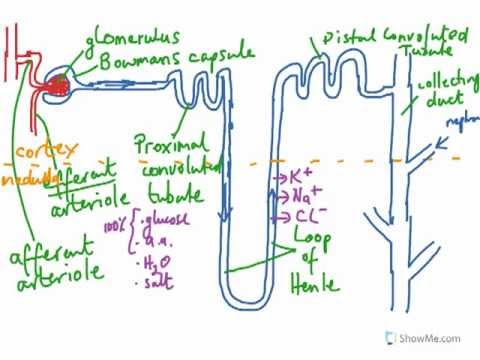 glomerulus
Bowmans capsule
Distal Convoluted
Tubule
collecting
duct
Proximal
convoluted
tubule
cortex
medulla
efferent
arteriole
afferent
arteriole
100%
glucose
a.a.
H2O
salt
K+
Na+
CL-
Loop
of
Henle
ShowMe.com